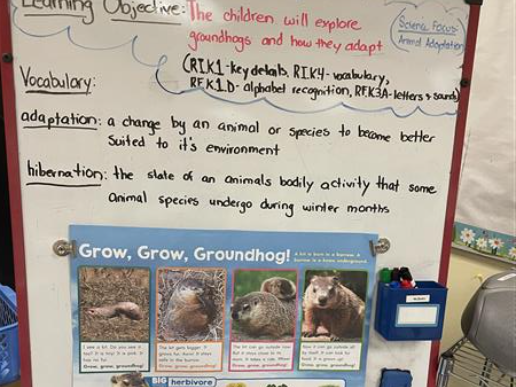 Learning Objective: The children will explore
groundhogs and how they adapt
Science Focus:
Animal Adaptation
(RI.K1-key details, RI.K4-vocabulary,
RF.K1.D-alphabet recognition, RF.K3A-letters & sounds)
Vocabulary:
adaptation: a change by an animal or species to become better
suited to it's environment
hibernation: the state of an animals bodily activity that some
animal species undergo during winter months
Grow, Grow, Groundhog!
A kit is born in a burrow. A
burrow is a home underground.
I see a kit. Do you see it
too? It is tiny! It is pink. It
has no fur.
Grow, grow, groundhog!
The kit gets bigger. It
grows fur. Now it
in the burrow.
Grow, grow, groundhog!
The kit can go outside now.
But it stays close to its
mom.
Grow, grow, groundhog!
Now it can go outside all
by itself. It can look for
food. It is a grown-up!
Grow, grow, groundhog!
BIG herbivore